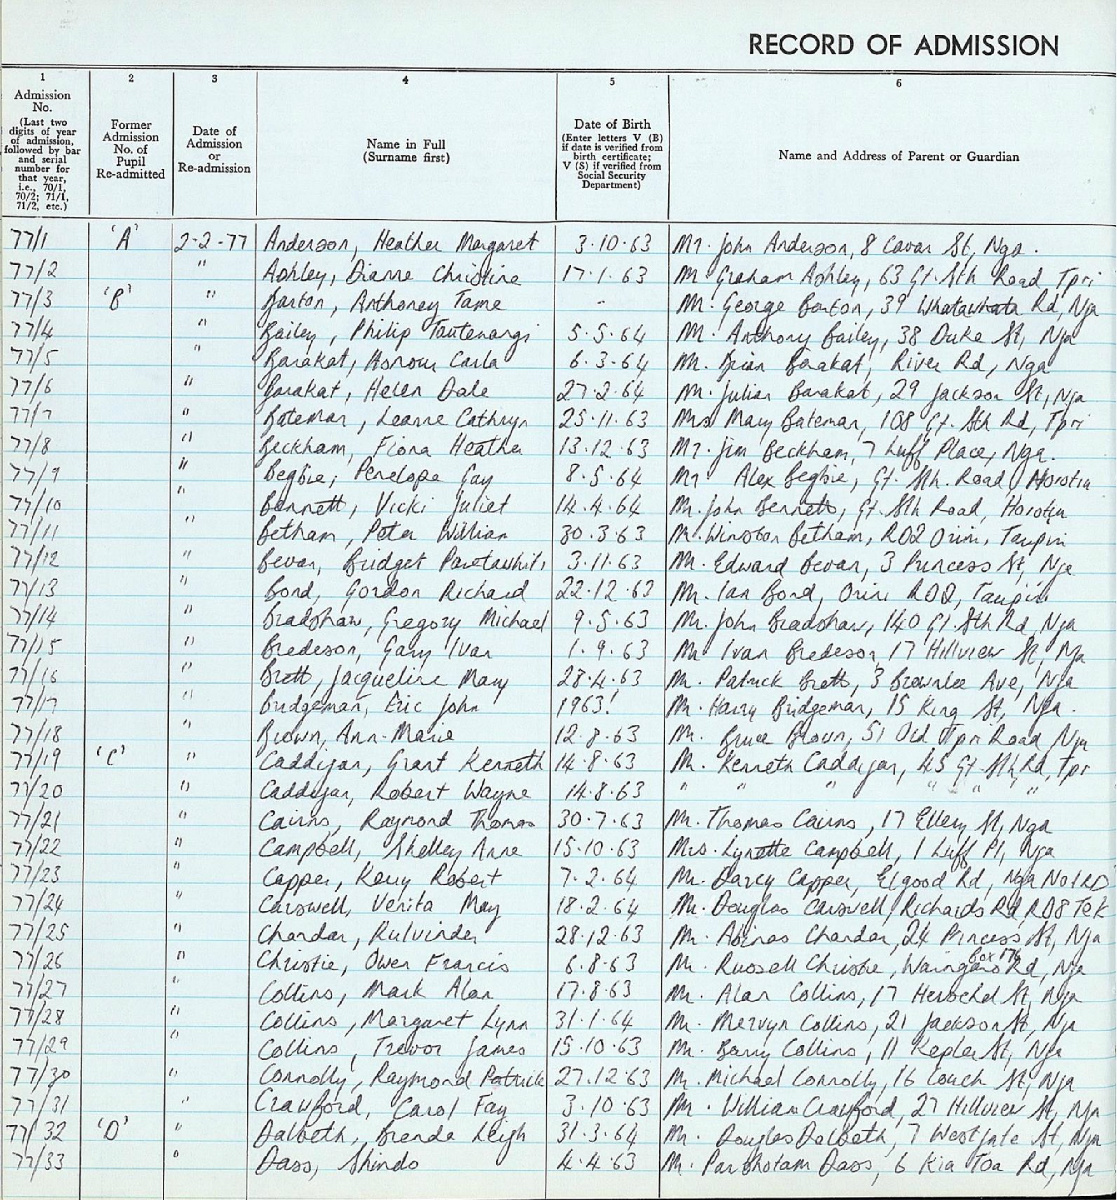 RECORD OF ADMISSION
1 2 3 4 5 6
Admission No. (Last two digits of year of admission, followed by bar and serial number for that year, i.e., 70/1, 70/2; 71/1, 71/2, etc.)
Former Admission No. of Pupil Re-admitted
Date of Admission or Re-admission
Name in Full (Surname first)
Date of Birth (Enter letters V (B) if date is verified from birth certificate; V (S) if verified from Social Security Department)
Name and Address of Parent or Guardian
77/1 'A' 2-2-77 Anderson, Heather Margaret 3.10.63 Mr. John Anderson, 8 St, Nga.
77/2 " Ashley, Dianne Christine 17.1.63 Mr Graham Ashley, 63 Gt. Sth Road, Tpri
77/3 'B' " Barton, Anthoney Tame " Mr. George Barton, 39 Whatawhata Rd, Nga
77/4 " Bailey, Philip Tautenangi 5.5.64 Mr. Anthony Bailey, 38 Duke St, Nga
77/5 " Barakat, Honour Carla 6.3.64 Mr. Brian Barakat, River Rd, Nga
77/6 " Barakat, Helen Dale 27.2.64 Mr. Julian Barakat, 29 Jackson St, Nga
77/7 " Bateman, Leanne Cathryn 25.11.63 Mrs Mary Bateman, 108 Gt. Sth Rd, Tpri
77/8 " Beckham, Fiona Heather 13.12.63 Mr. Jim Beckham, 7 Luff Place, Nga.
77/9 " Begbie, Penelope Gay 8.5.64 Mr Alex Begbie, Gt. Sth. Road, Horotiu
77/10 " Bennett, Vicki Juliet 14.4.64 Mr. John Bennett, Gt Sth Road, Horotiu
77/11 " Betham, Peter William 30.3.63 Mr. Winston Betham, RD2 Orini, Taupiri
77/12 " Bevan, Bridget 3.11.63 Mr. Edward Bevan, 3 Princess St, Nga
77/13 " Bond, Gordon Richard 22.12.63 Mr. Ian Bond, Orini RD2, Taupiri
77/14 " Bradshaw, Gregory Michael 9.5.63 Mr. John Bradshaw, 140 Gt Sth Rd, Nga
77/15 " Bredeson, Gary Ivan 1.9.63 Mr Ivan Bredeson, 17 Hillview St, Nga
77/16 " Brett, Jacqueline Mary 28.4.63 Mr. Patrick Brett, 3 Brownlee Ave, Nga
77/17 " Bridgeman, Eric John 1963! Mr. Harry Bridgeman, 15 King St, Nga.
77/18 " Brown, Ann-Marie 12.8.63 Mr. Bruce Brown, 51 Old Tpri Road, Nga
77/19 'C' " Caddigan, Grant Kenneth 14.8.63 Mr. Kenneth Caddigan, 45 Gt Sth Rd, Tpri
77/20 " Caddigan, Robert Wayne 14.8.63 " " " " " " "
77/21 " Cairns, Raymond Thomas 30.7.63 Mr. Thomas Cairns, 17 Ellery St, Nga
77/22 " Campbell, Shelley Anne 15.10.63 Mrs. Lynette Campbell, 1 Luff Pl, Nga
77/23 " Capper, Kerry Robert 7.2.64 Mr. Darcy Capper, Elgood Rd, Nga No1RD
77/24 " Carswell, Verita May 18.2.64 Mr. Douglas Carswell, Richards Rd, RD8 TeK
77/25 " Chandar, Kulvinder 28.12.63 Mr. Abinas Chandar, 24 Princess St, Nga
77/26 " Christie, Owen Francis 6.8.63 Mr. Russell Christie, Waingaro Rd, Nga
77/27 " Collins, Mark Alan 17.8.63 Mr. Alan Collins, 17 Herschel St, Nga
77/28 " Collins, Margaret Lynn 31.1.64 Mr. Mervyn Collins, 21 Jackson St, Nga
77/29 " Collins, Trevor James 15.10.63 Mr. Barry Collins, 11 Kepler St, Nga
77/30 " Connolly, Raymond Patrick 27.12.63 Mr. Michael Connolly, 16 Couch St, Nga
77/31 " Crawford, Carol Fay 3.10.63 Mr. William Crawford, 27 Hillview St, Nga
77/32 'D' " Dalbeth, Brenda Leigh 31.3.64 Mr. Douglas Dalbeth, 7 Westgate St, Nga
77/33 " Dass, Shindo 4.4.63 Mr. Parshotam Dass, 6 Kia Toa Rd, Nga